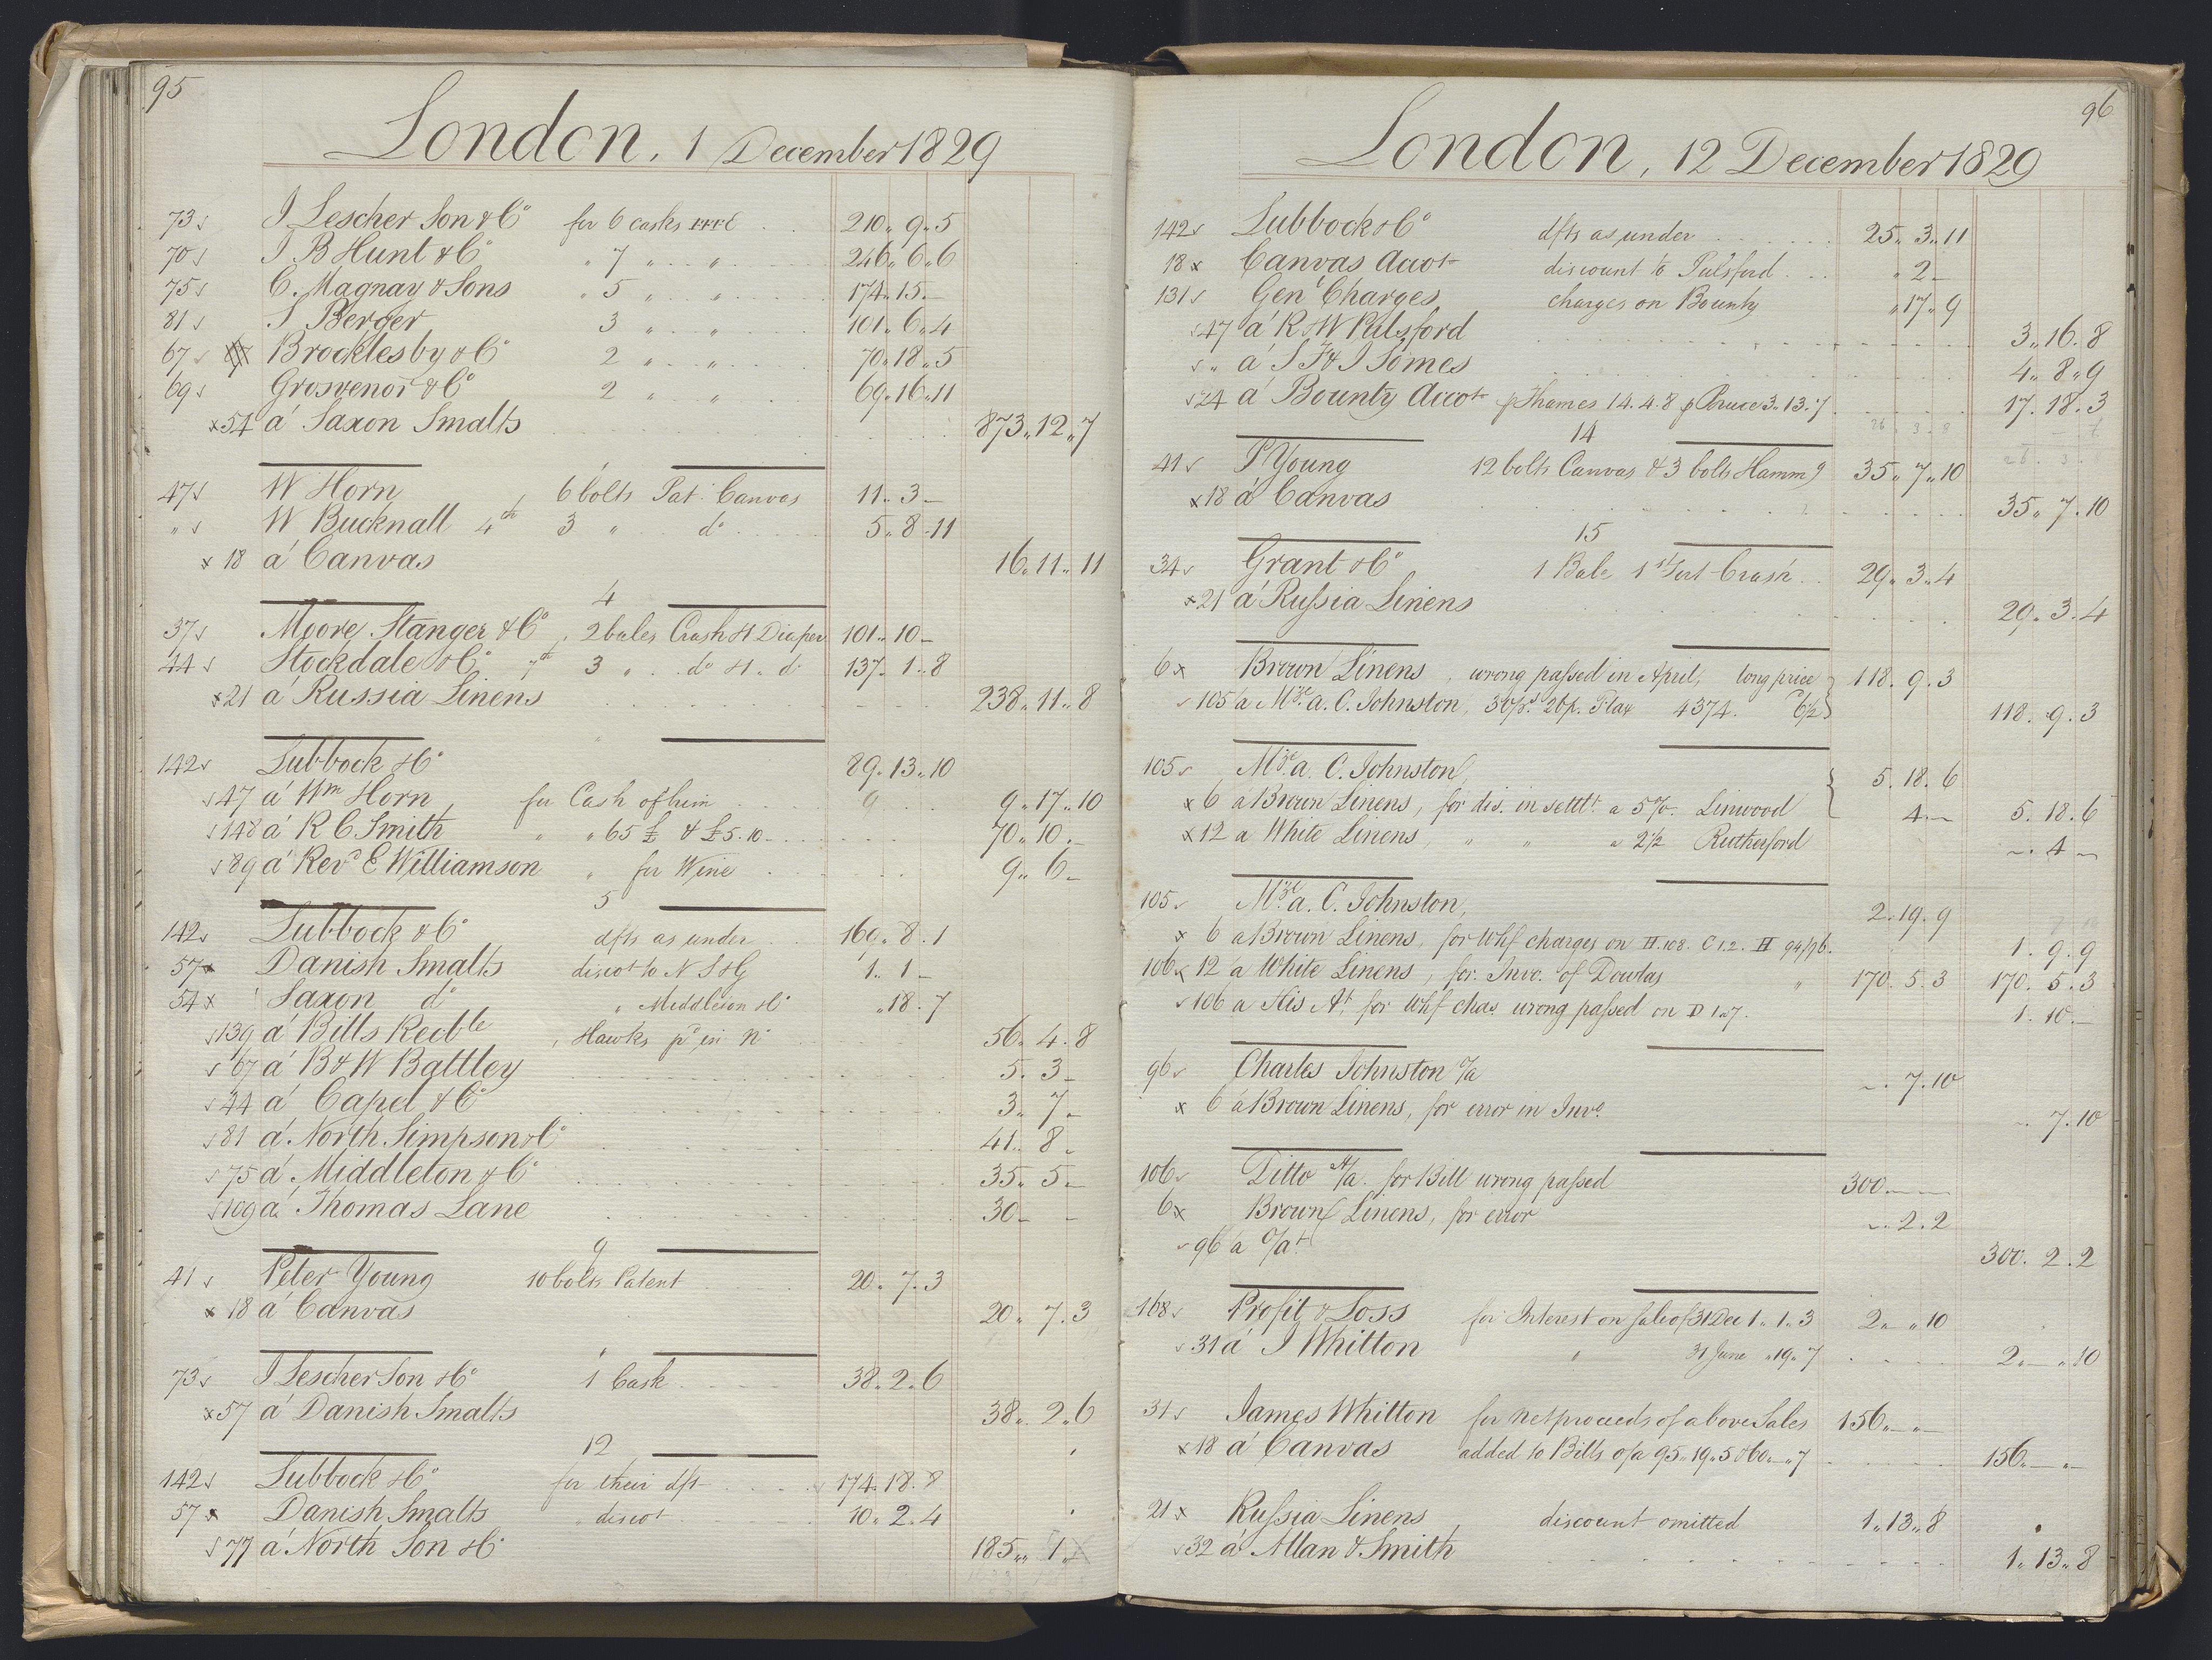 95
London, 1 December 1829
73 I Lescher Son & Co for 6 casks FFFE 210 " 9 " 5
70 I B Hunt & Co " 7 " " 246 " 6 " 6
75 C. Magnay & Sons " 5 " " 174 " 15 " –
81 S Berger 3 " " 101 " 6 " 4
67 Brocklesby & Co 2 " " 70 " 18 " 5
69 Grosvenor & Co 2 " " 69 " 16 " 11
x 54 a Saxon Smalts 873 " 12 " 7
47 W Horn 6 bolts Pat. Canvas 11 " 3 –
" W Bucknall 4th 3 " do 5 " 8 " 11
x 18 a Canvas 16 " 11 " 11
4
37 Moore Stanger & Co, 2 bales Crash & Diaper 101 " 10 –
44 Stockdale & Co 7th 3 " do & do 137 " 1 " 8
x 21 a Russia Linens 238 " 11 " 8
142 Lubbock & Co 89 " 13 " 10
47 a Wm Horn, for Cash of him 9 " 17 " 10
148 a R C Smith " " 65 £ & £5.10 – 70 " 10 " –
89 a Revd E Williamson " for Wine 9 " 6 –
5
142 Lubbock & Co dfts as under 169 " 8 . 1
57 x Danish Smalts discot to N S & G 1 " 1 –
54 x Saxon do " Middleton & Co " 18 " 7
139 a Bills Recble, Hawks pd in No 56 " 4 . 8
67 a B & W Battley 5 . 3 –
44 a Capel & Co 3 " 7 –
81 a North Simpson & Co 41 " 8 "
75 a Middleton & Co 35 " 5 –
109 a Thomas Lane 30 – –
9
41 Peter Young 10 bolts Patent 20 " 7 . 3
x 18 a Canvas 20 " 7 . 3
73 I Lescher Son & Co 1 Cask 38 " 2 " 6
x 57 a Danish Smalts 38 " 2 " 6
12
142 Lubbock & Co for their dft 174 " 18 . 8
57 x Danish Smalts " discot 10 " 2 . 4
77 a North Son & Co 185 " 1 "
96
London, 12 December 1829
142 Lubbock & Co dfts as under 25 " 3 " 11
18 x Canvas Accot discount to Pulsford " 2 –
131 Genl Charges charges on Bounty " 17 " 9
47 a R & W Pulsford 3 " 16 . 8
" a S F & I Somes 4 " 8 " 9
24 a Bounty Accot p Thames 14.4.8 p Bruce 3.13.7 17 . 18 . 3
14
41 P Young 12 bolts Canvas & 3 bolts Hammg 35 " 7 " 10
x 18 a Canvas 35 " 7 . 10
15
34 Grant & Co 1 Bale 1st Sort Crash 29 " 3 " 4
x 21 a Russia Linens 29 . 3 . 4
6 x Brown Linens, wrong passed in April, long price 118 . 9 . 3
105 a Mrs a. C. Johnston, 30/ps. 26p. Flax 4374. 6½ 118 . 9 . 3
105 Mrs a. C. Johnston 5 . 18 . 6
x 6 a Brown Linens, for dis. in settlt. a 5%. Linwood 4 – 5 . 18 . 6
x 12 a White Linens, " " a 2½ Rutherford – . 4 –
105 Mrs a. C. Johnston, 2 . 19 . 9
x 6 a Brown Linens, for Whf charges on H.108. C 1.2. H 94/96. 1 . 9 . 9
106 x 12 a White Linens, for Invo. of Dowlas " 170 . 5 . 3 170 . 5 . 3
106 a His At. for Whf Chas. wrong passed on D 1 a 7. 1 . 10 . –
96 Charles Johnston O/a – . 7 . 10
x 6 a Brown Linens, for error in Invo. – . 7 . 10
106 Ditto N/a. for Bill wrong passed 300 . – –
6 x Brown Linens, for error – . 2 . 2
96 a O/at 300 . 2 . 2
168 Profit & Loss for Interest on Sale of 31 Dec 1 " 1 " 3 2 " " 10
31 a I Whitton " 31 June " 19 " 7 2 " – " 10
31 James Whitton for net proceeds of above Sales 156 " – " –
x 18 a Canvas added to Bills o/a 95 " 19 " 5 & 60 " – " 7 156 " – " –
21 x Russia Linens, discount omitted 1 " 13 " 8
32 a Allan & Smith 1 " 13 " 8